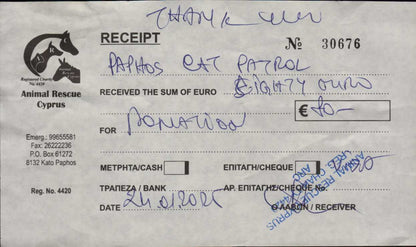 THANK YOU
RECEIPT
№ 30676
PAPHOS CAT PATROL
Registered Charity
No. 4420
Animal Rescue
Cyprus
RECEIVED THE SUM OF EURO EIGHTY EURO
€ 80-
FOR DONATION
Emerg.: 99655581
Fax: 26222236
P.O. Box 61272
8132 Kato Paphos
ΜΕΤΡΗΤΑ/CASH
ΕΠΙΤΑΓΗ/CHEQUE
Reg. No. 4420
ΤΡΑΠΕΖΑ / BANK
ΑΡ. ΕΠΙΤΑΓΗΣ/CHEQUE No.
ANIMAL RESCUE CYPRUS
DATE
Ο ΛΑΒΩΝ / RECEIVER